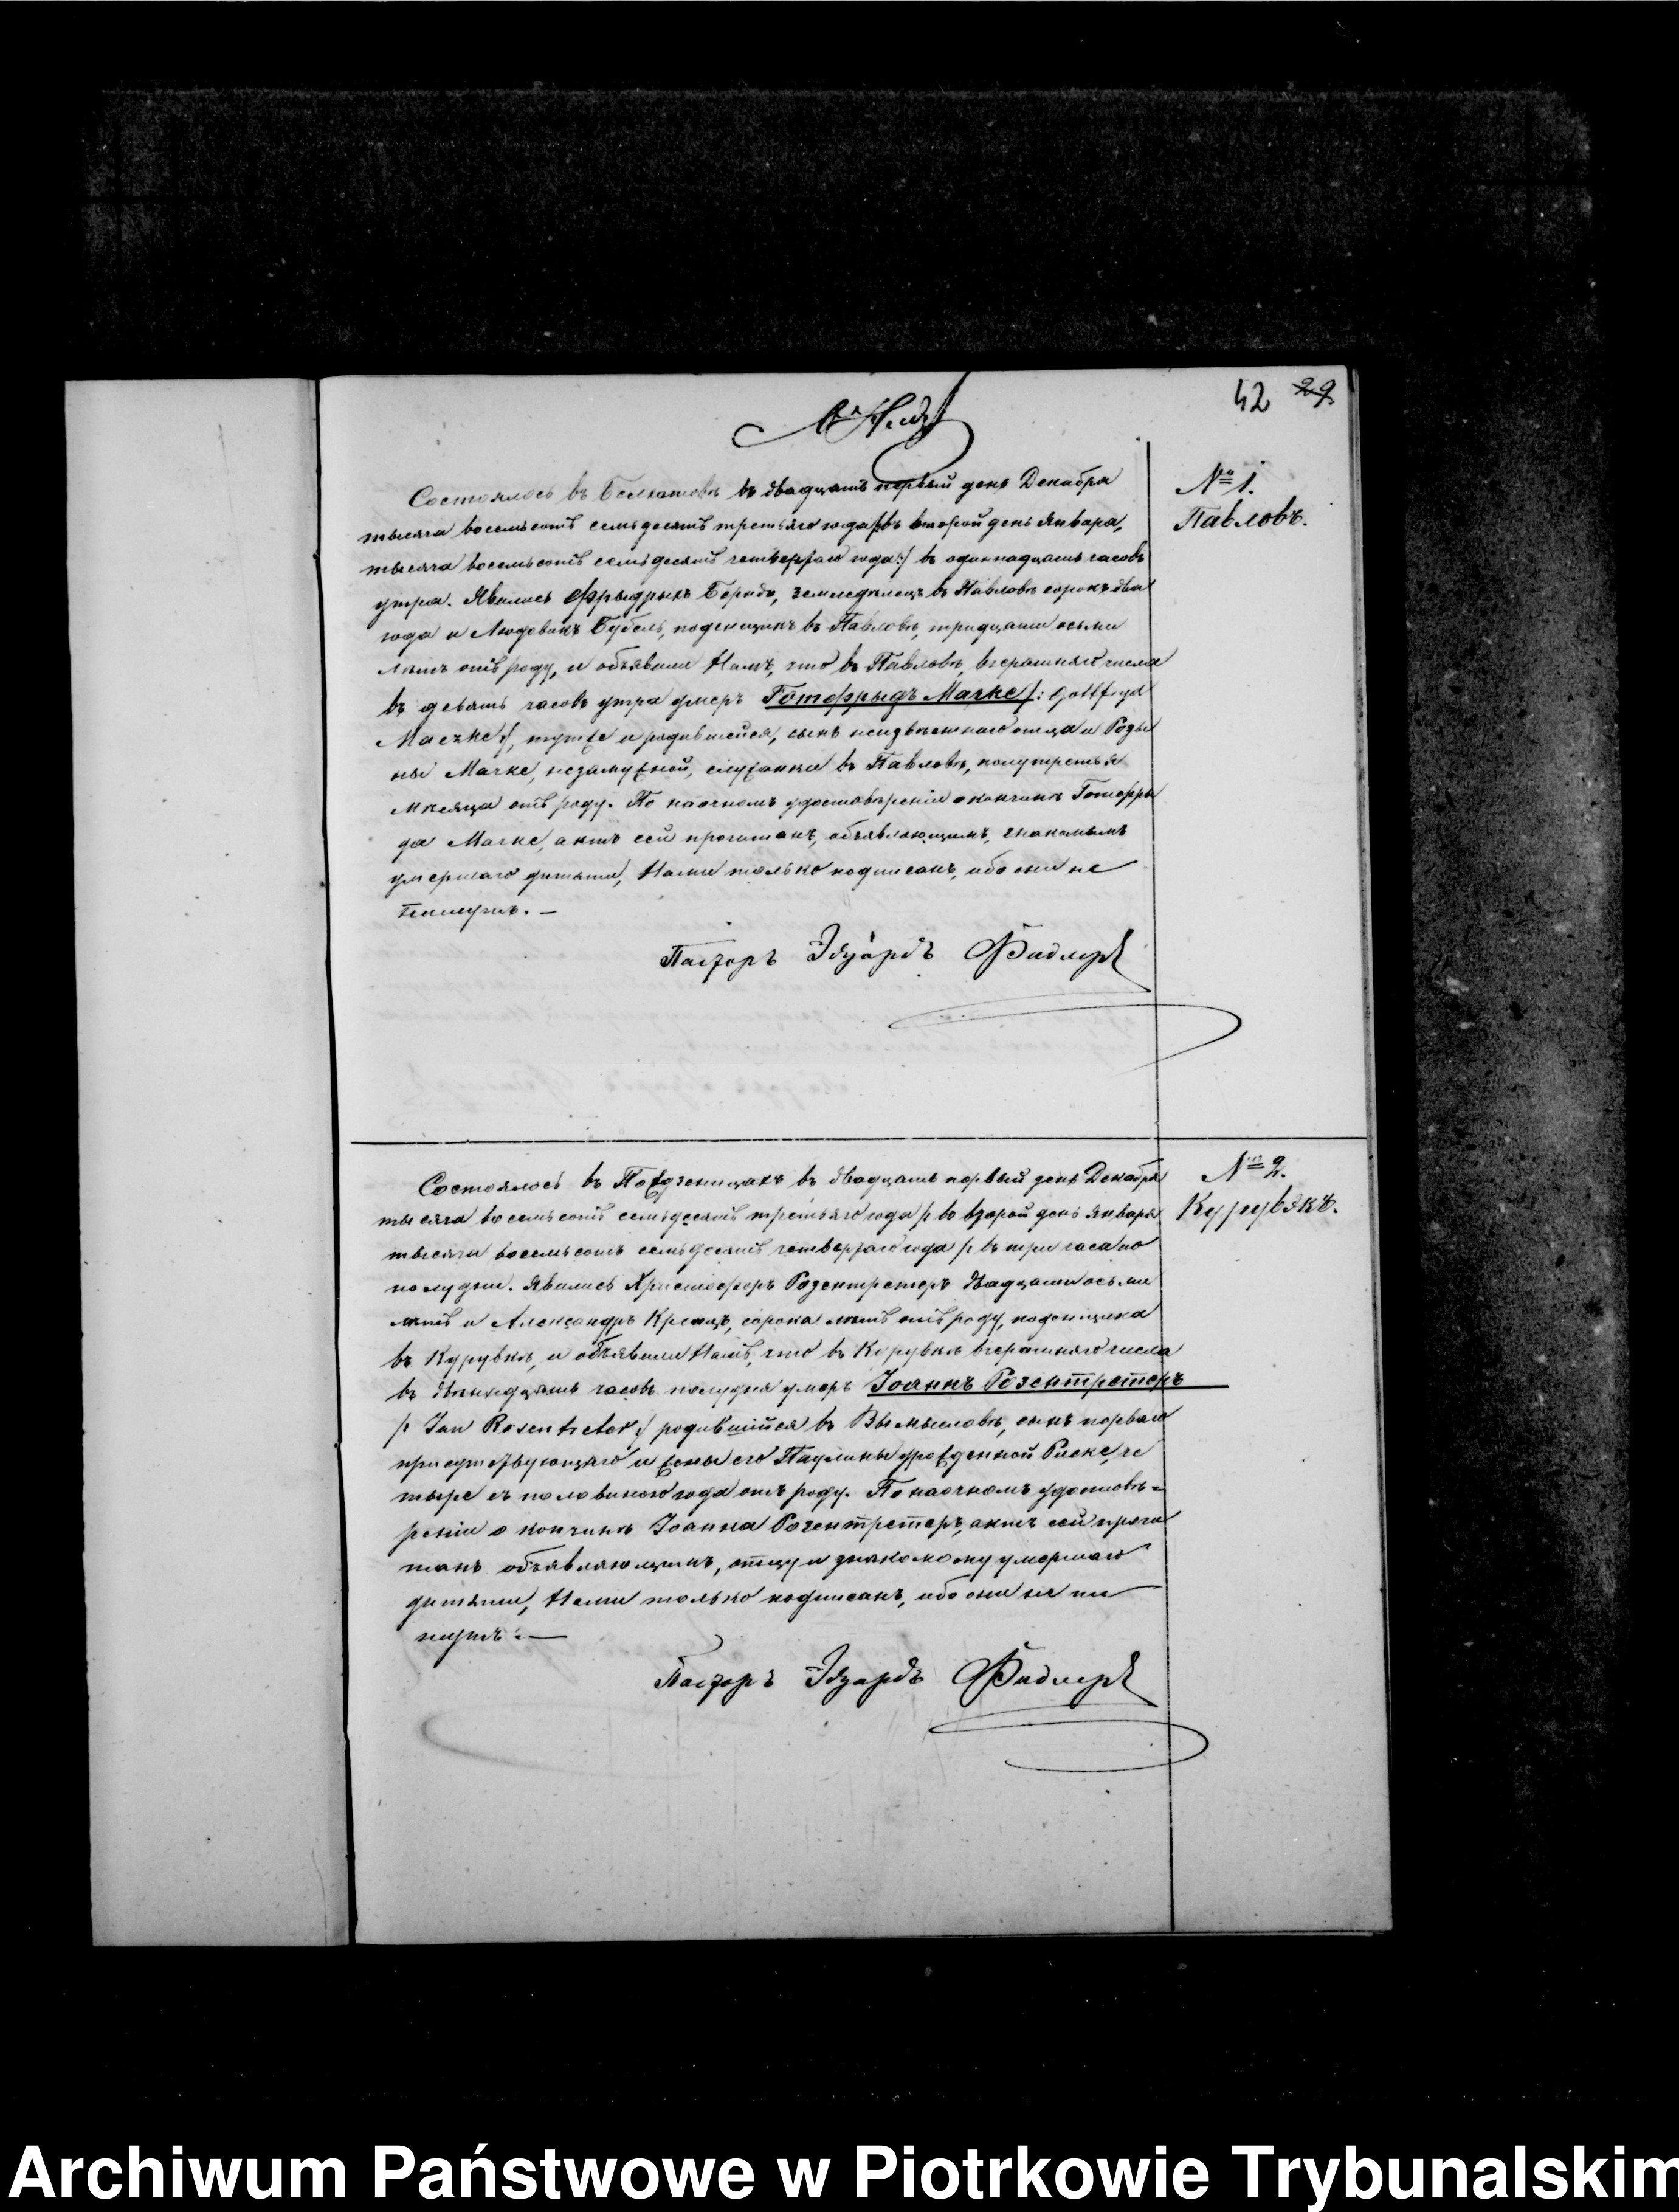 42 29
№ 1.
Павловъ.
Состоялось въ Белхатовѣ въ двадцать первый день Декабря
тысяча восемьсотъ семьдесятъ третьяго года /:въ второй день Января,
тысяча восемьсотъ семьдесятъ четвертаго года:/ въ одиннадцать часовъ
утра. Явились Фрыдрыхъ Берндъ, земледѣлецъ въ Павловѣ сорокъ два
года и Людевикъ Бубель, поденщикъ въ Павловѣ, тридцати осьми
лѣтъ отъ роду, и объявили Намъ, что въ Павловѣ, вчерашняго числа
въ девять часовъ утра умеръ Готфрыдъ Мачке /: Gottfryd
Maczke :/, тутже и родившейся, сынъ неизвѣстнаго отца и Розы
ны Мачке, незамужной, служанки въ Павловѣ, полутретья
мѣсяца отъ роду. По наочномъ удостовѣреніи о кончинѣ Готфры
да Мачке, актъ сей прочитанъ, объявляющимъ, знакомымъ
умершаго дитяти, Нами только подписанъ, ибо они не
пишутъ. —
Пасторъ Эдуардъ Фидлеръ
№ 2.
Курувэкъ.
Состоялось въ Пождзеницахъ въ двадцать первый день Декабря
тысяча восемьсотъ семьдесятъ третьяго года /: во второй день Января
тысяча восемьсотъ семьдесятъ четвертаго года /: въ три часа по
полудни. Явились Христофоръ Розентретеръ двадцати осьми
лѣтъ и Александръ Кренцъ, сорока лѣтъ отъ роду, поденщики
въ Курувкѣ, и объявили Намъ, что въ Курувкѣ вчерашняго числа
въ двѣнадцать часовъ полудня умеръ Іоаннъ Розентретеръ
/: Jan Rosentreter :/ родившійся въ Вымысловѣ, сынъ перваго
присутствующаго и жены его Паулины урожденной Риске, че
тыре съ половиною года отъ роду. По наочномъ удостовѣ=
реніи о кончинѣ Іоанна Розентретеръ, актъ сей прочи
танъ объявляющимъ, отцу и знакомому умершаго
дитяти, Нами только подписанъ, ибо они не пи
шутъ. —
Пасторъ Эдуардъ Фидлеръ
Archiwum Państwowe w Piotrkowie Trybunalskim